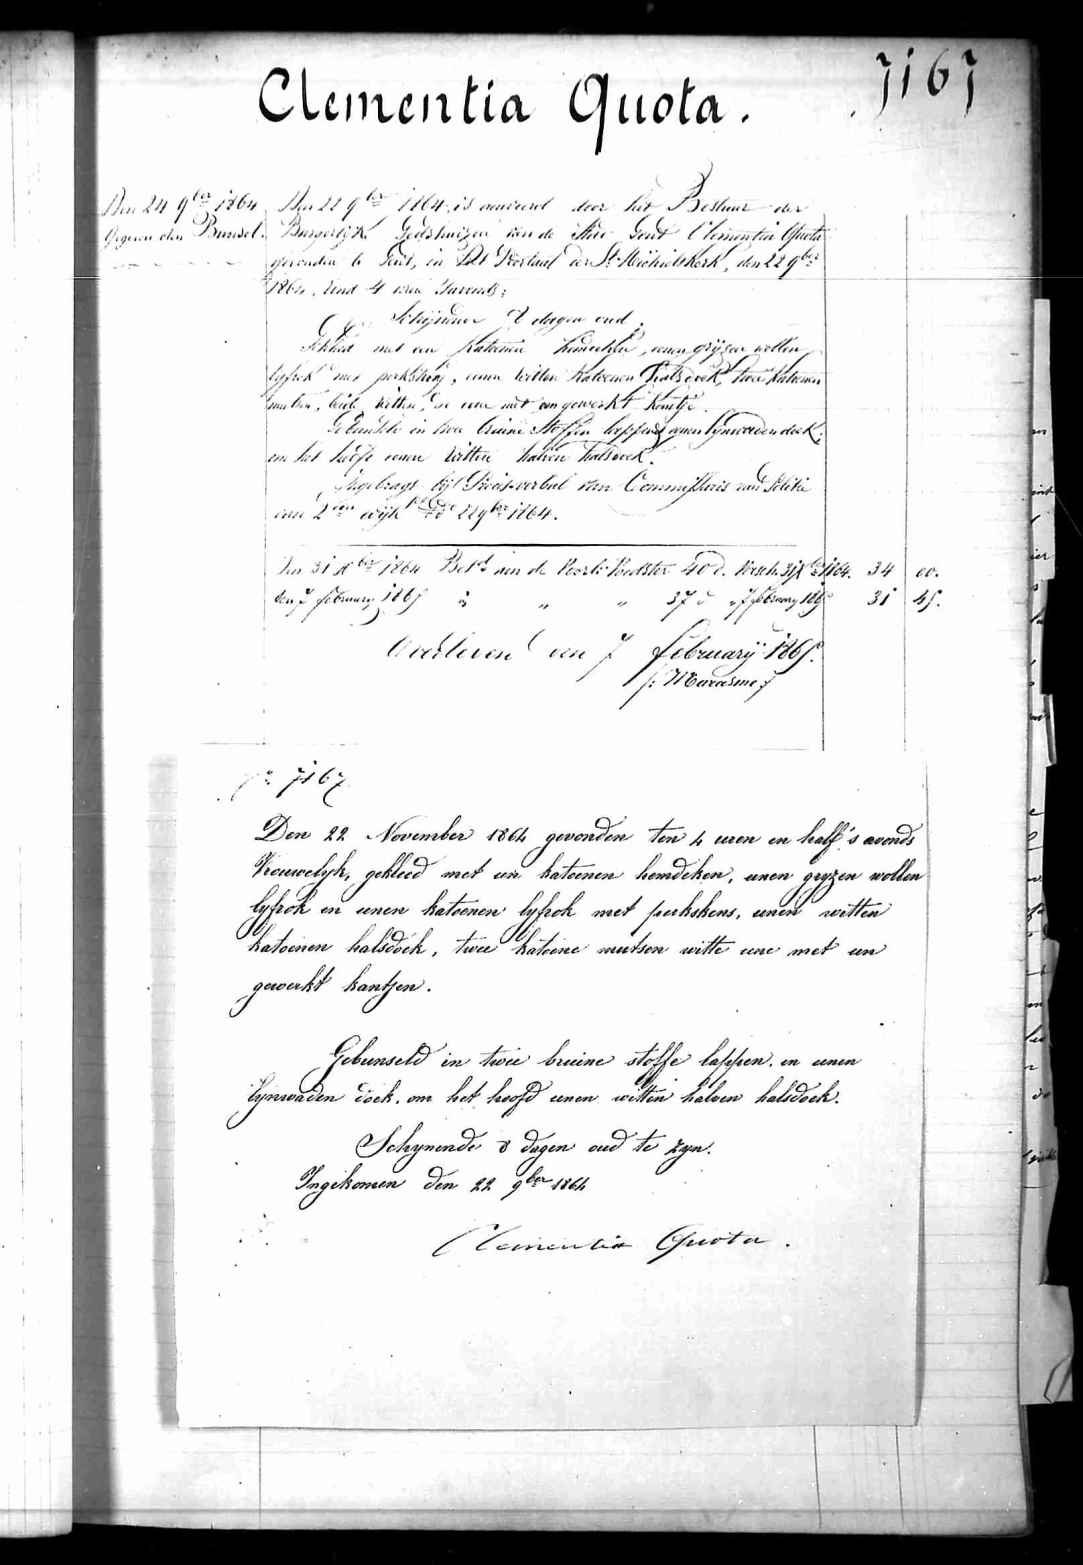 7167
Clementia Quota.
Den 24 9ber 1864
gegeven den Bunsel.
Den 22 9ber 1864, is aanveerd door het Bestuur der
Burgerlijke Godshuizen van de stad Gent Clementia Quota
gevonden te Gent, in het Portaal der St Michielskerk, den 22 9ber
1864, rond 4 uren 's avonds;
Schijnende 8 dagen oud.
Gekleed met een katoenen hemdeken, eenen grijzen wollen
lyfrok met perkskens, eenen witten katoenen halsdoek, twee katoenen
mutsen, beide witte, de eene met een gewerkt kantje.
Gebunseld in twee bruine stoffen lappen, eenen lynwaden doek,
om het hoofd eenen witten halven halsdoek.
Ingebragt bij Proces-verbaal van Commissaris van Politie
van 2den wijk de do 22 9ber 1864.
Den 31 Xber 1864 Bet. aan de Voorl. Voedster 40 d. versch. 31 Xber 1864. 34 00.
den 7 february 1865 " " " 37 d " 7 february 1865 31 45.
Overleden den 7 february 1865.
/: Marasme :/
No 7167
Den 22 November 1864 gevonden ten 4 uren en half 's avonds
Vrouwelyk, gekleed met een katoenen hemdeken, eenen gryzen wollen
lyfrok en eenen katoenen lyfrok met perkskens, eenen witten
katoenen halsdoek, twee katoene mutsen witte eene met een
gewerkt kantjen.
Gebunseld in twee bruine stoffe lappen, en eenen
lynwaden doek, om het hoofd eenen witten halven halsdoek.
Schynende 8 dagen oud te zyn.
Ingekomen den 22 9ber 1864
Clementia Quota.